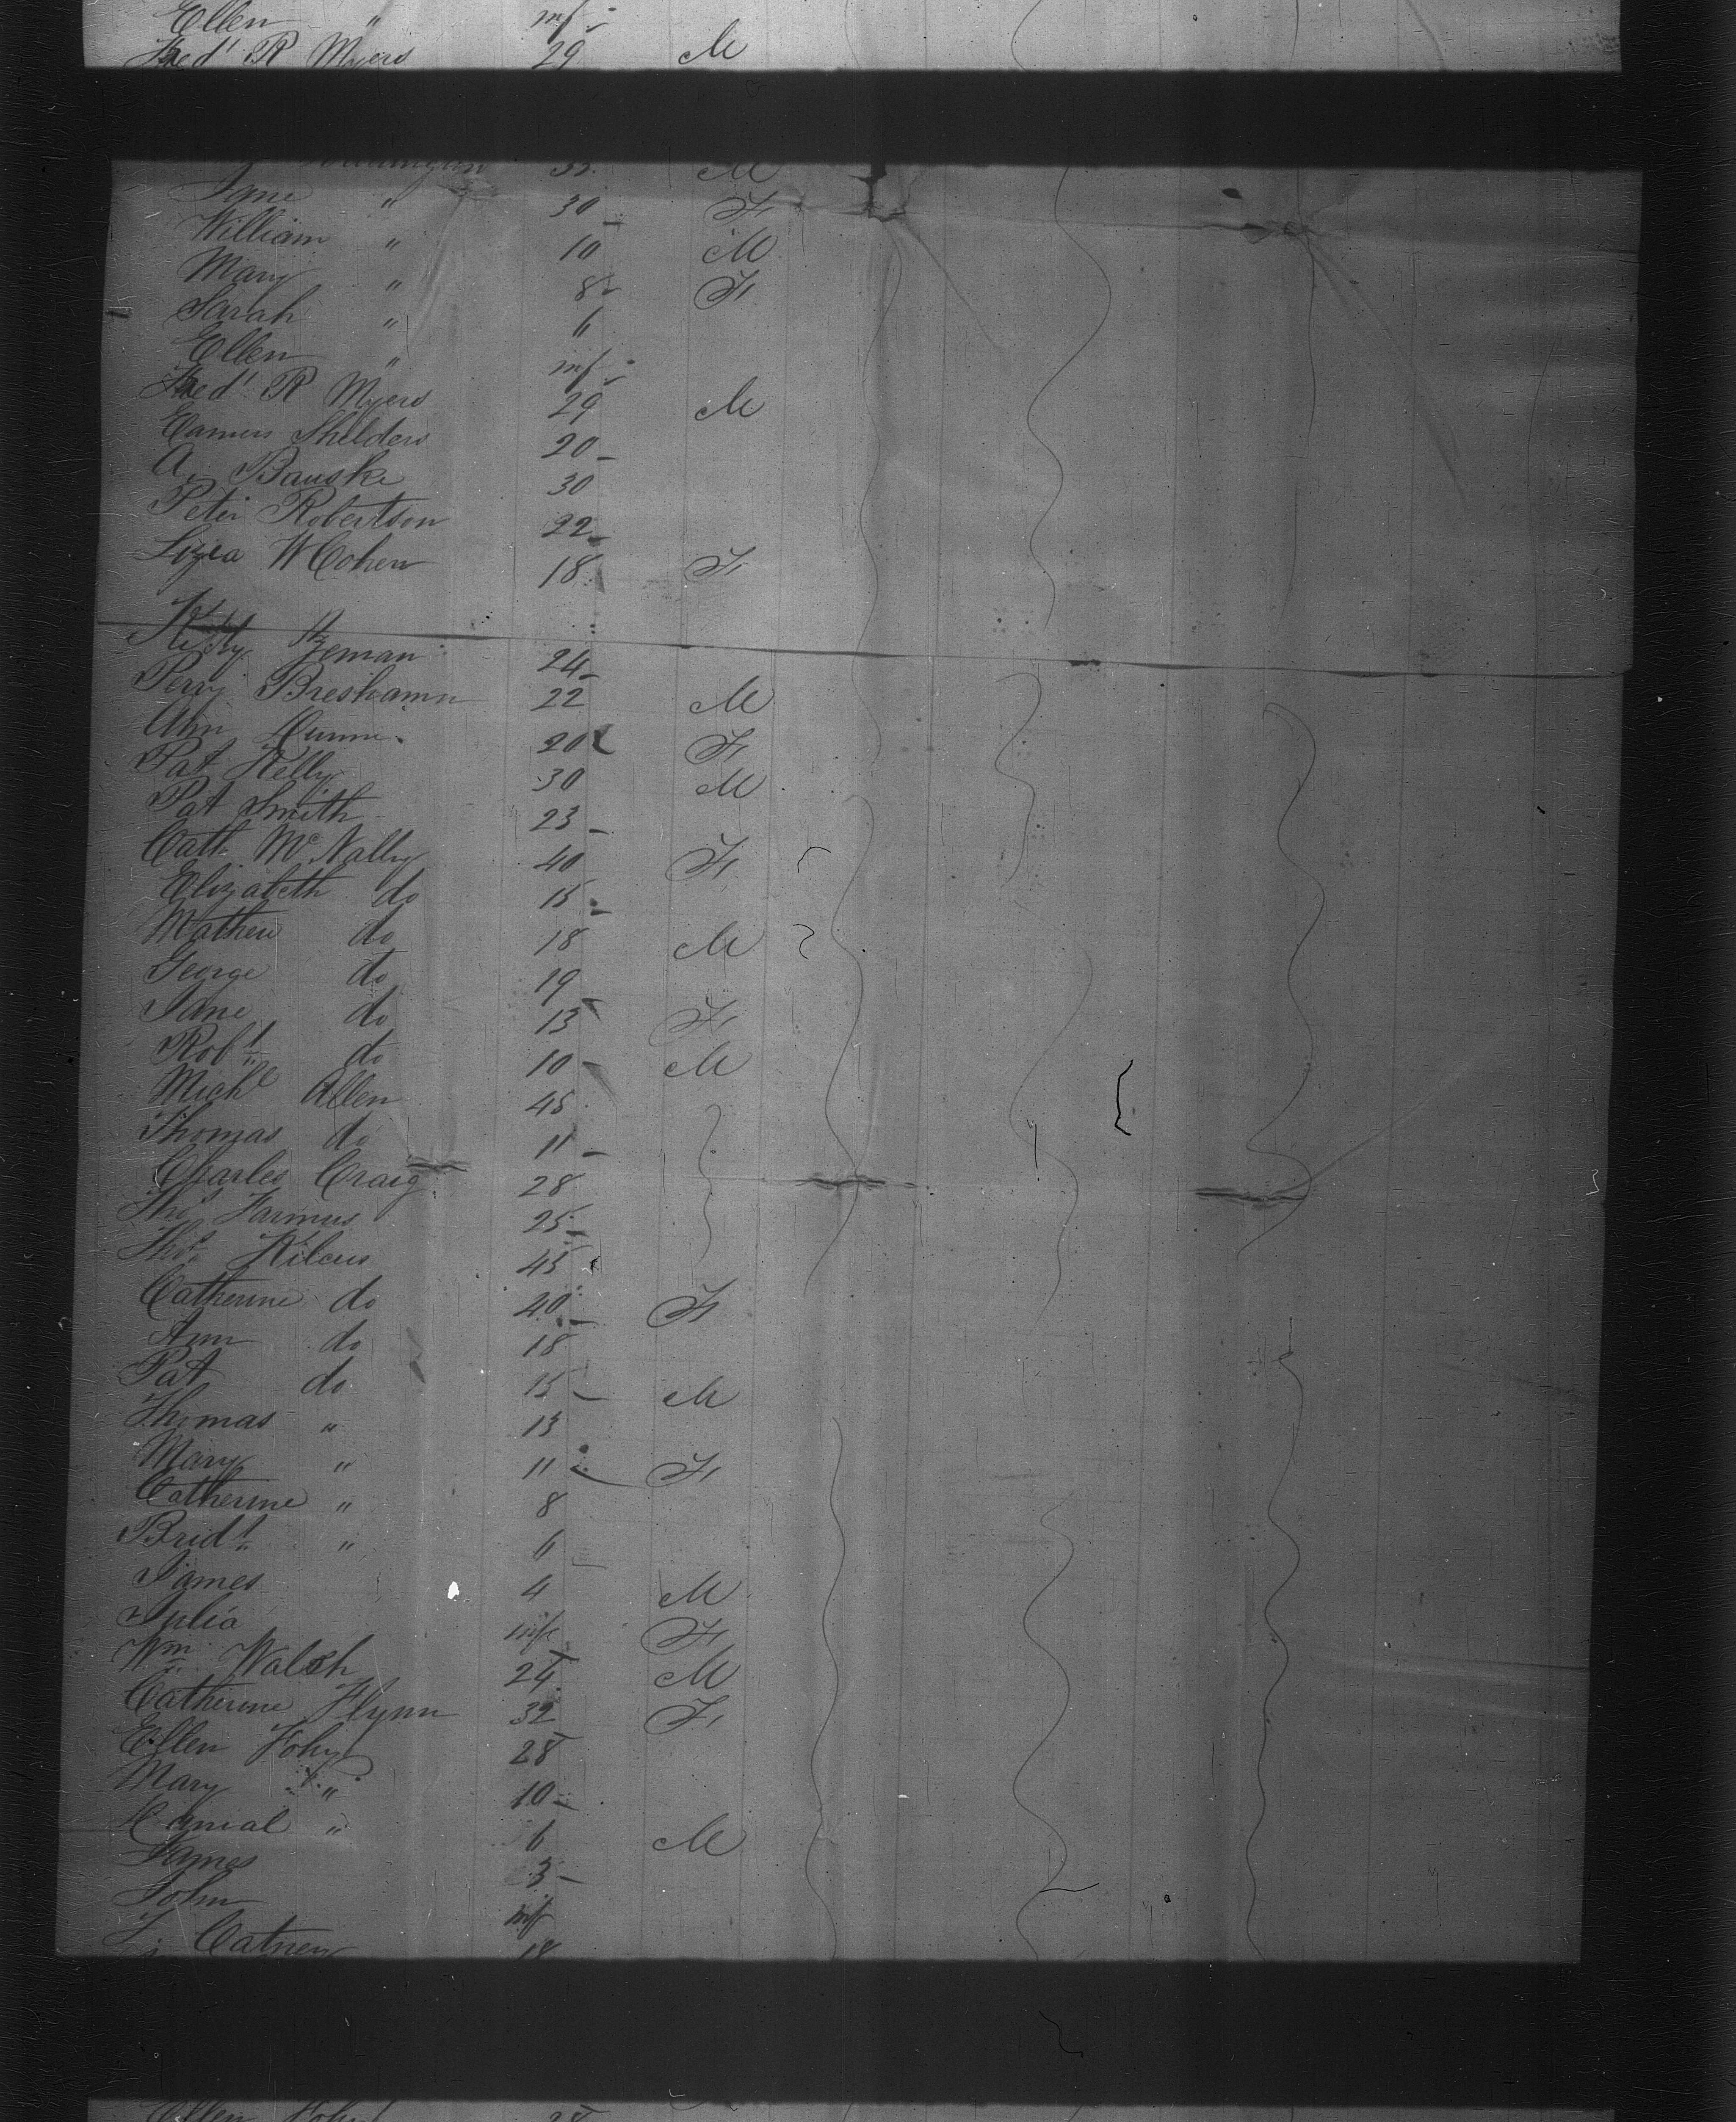 Ellen " inf
Fred R Myers 29 M
35 M
Jane " 30 F
William " 10 M
Mary " 8 F
Sarah " 6
Ellen " inf
Fred R Myers 29 M
Shelders 20
A. Bauske 30
Peter Robertson 22
W Cohen 18 F
Kitty 24
Perry 22 M
Ann 20 F
Pat Kelly 30 M
Pat Smith 23
Cath McNally 40 F
Elizabeth do 15
Mathew do 18 M
George do 19
Jane do 13 F
Robt do 10 M
Michl Allen 45
Thomas do 11
Charles Craig 28
Thos Farmus 25
Thos Kilcus 45
Catherine do 40 F
Ann do 18
Pat do 15 M
Thomas " 13
Mary " 11 F
Catherine " 8
Bridt " 6
James 4 M
Julia inf F
Wm Walsh 24 M
Catherine Flynn 32 F
Ellen Fohy 28
Mary " 10
" 6 M
James 3
John inf
18
Ellen Fohy 28